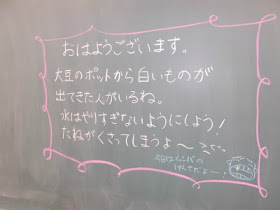 おはようございます。
大豆のポットから白いものが
出てきた人がいるね。
水はやりすぎないようにしよう！
たねがくさってしまうよ〜
今日は